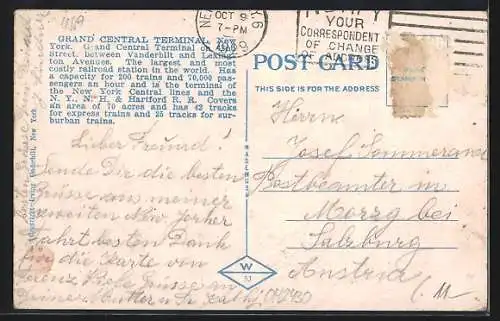 GRAND CENTRAL TERMINAL, New
York. Grand Central Terminal on 42nd
Street, between Vanderbilt and Lexing-
ton Avenues. The largest and most
costly railroad station in the world. Has
a capacity for 200 trains and 70,000 pas-
sengers an hour and is the terminal of
the New York Central lines and the
N. Y., N. H. & Hartford R. R. Covers
an area of 70 acres and has 42 tracks
for express trains and 25 tracks for sur-
burban trains.
OCT 9
7-PM
YOUR
CORRESPONDENT
OF CHANGE
OF ADDRESS
POST CARD
THIS SIDE IS FOR THE ADDRESS
Lieber Freund!
Sende Dir die besten
Grüsse aus meiner
zweiten New Yorker
fahrt besten Dank
für die Karte von
Deiner Mutter u.
Herrn
Josef
Postbeamter in
Morzg bei
Salzburg
Austria
MADE
W
Underhill, New York